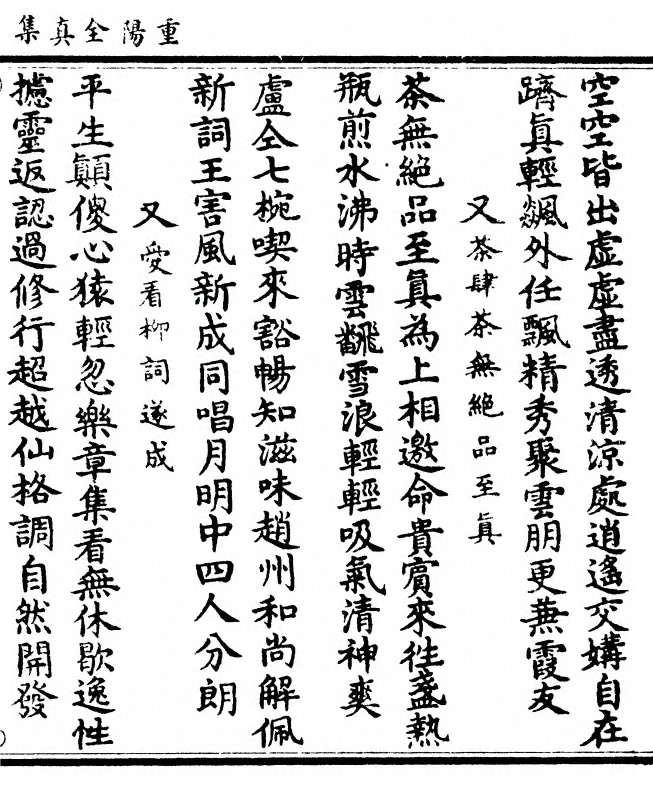 重陽全真集
空空皆出虛虛盡透清涼處逍遙交媾自在
躋眞輕飊外任飄精秀聚雲朋更蕪霞友
又茶肆茶無絶品至眞
茶無絶品至眞為上相邀命貴賔來徃盞熱
瓶煎水沸時雲飜雪浪輕輕吸氣清神爽
盧仝七椀喫來豁暢知滋味趙州和尚解佩
新詞王害風新成同唱月明中四人分朗
又愛看柳詞遂成
平生顚傻心猿輕忽樂章集看無休歇逸性
攄靈返認過修行超越仙格調自然開發